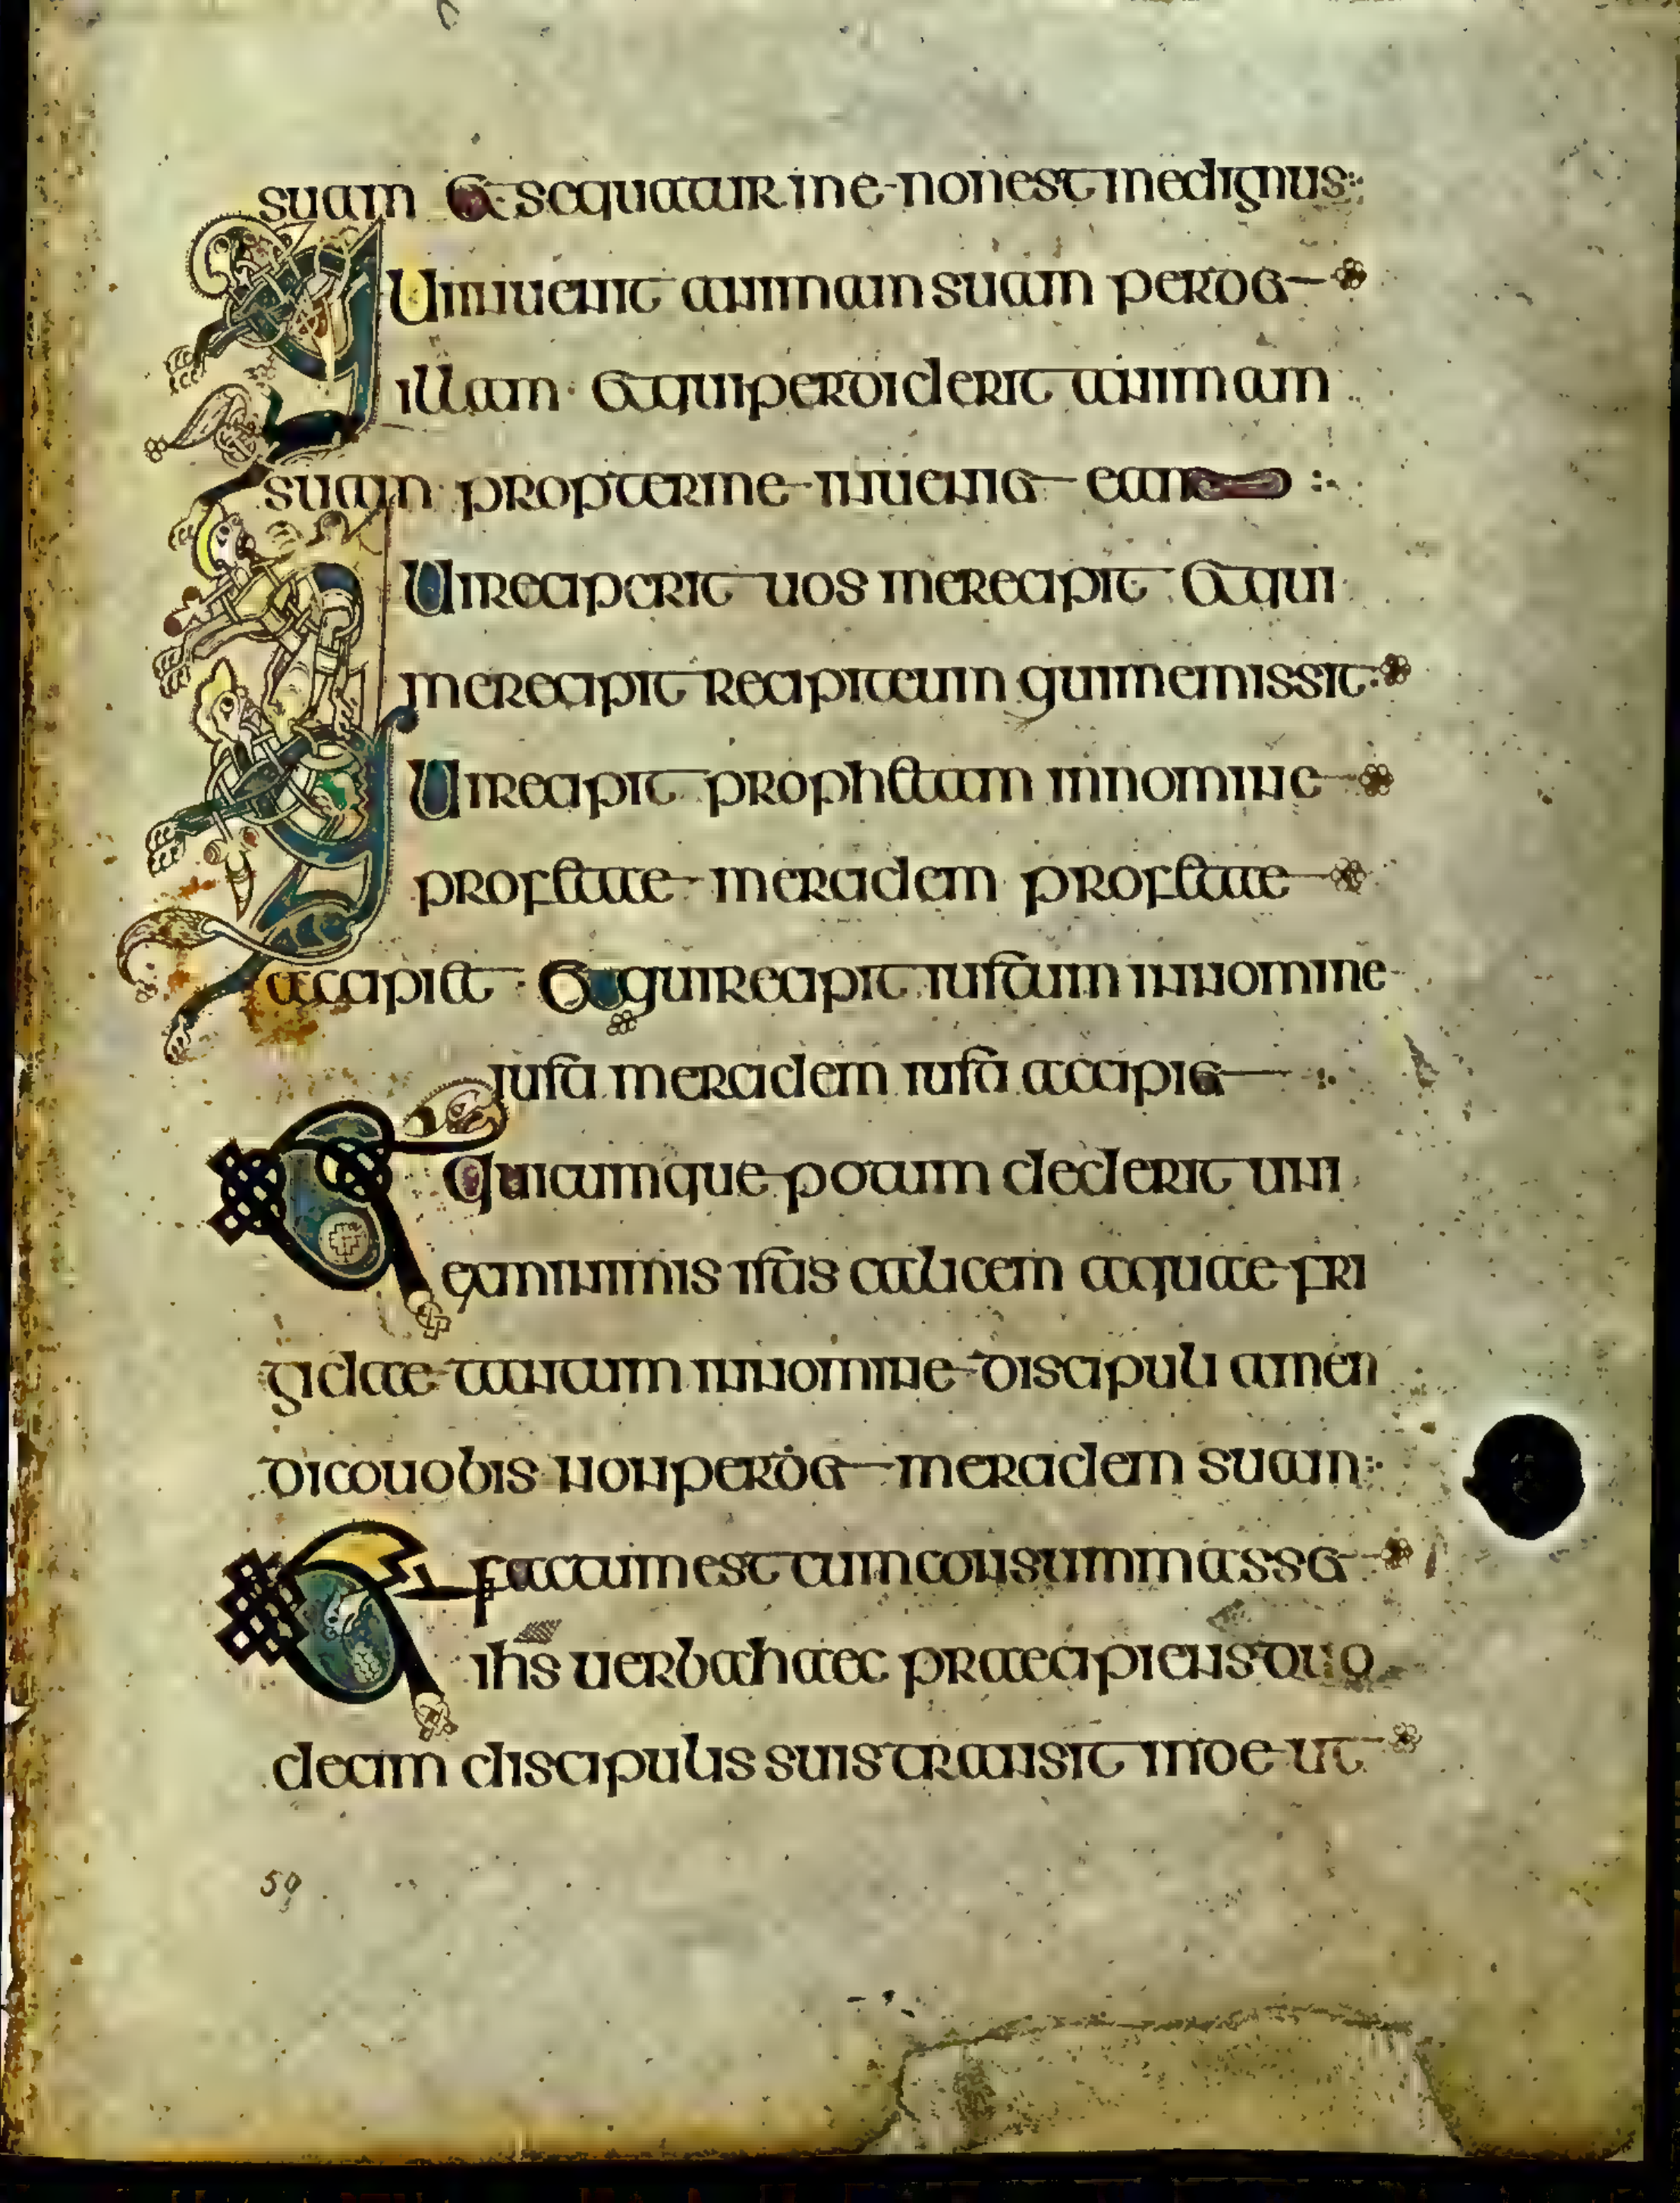 suam et sequatur me non est me dignus
Qui inuenit animam suam perdet
illam et qui perdiderit animam
suam propter me inueniet eam
Qui recaperit uos me recipit et qui
me recipit recipit eum qui me missit
Qui recipit prophetam in nomine
profetae mercidem profetae
accipiet et qui recipit iustum in nomine
iusti mercidem iusti accipiet
Et quicumque potum dederit uni
ex minimis istis calicem aquae fri
gidae tantum in nomine discipuli amen
dico uobis non perdet mercidem suam
Et factum est cum consummasset
ihs uerba haec praecipiens duo
decim discipulis suis transit inde ut
59